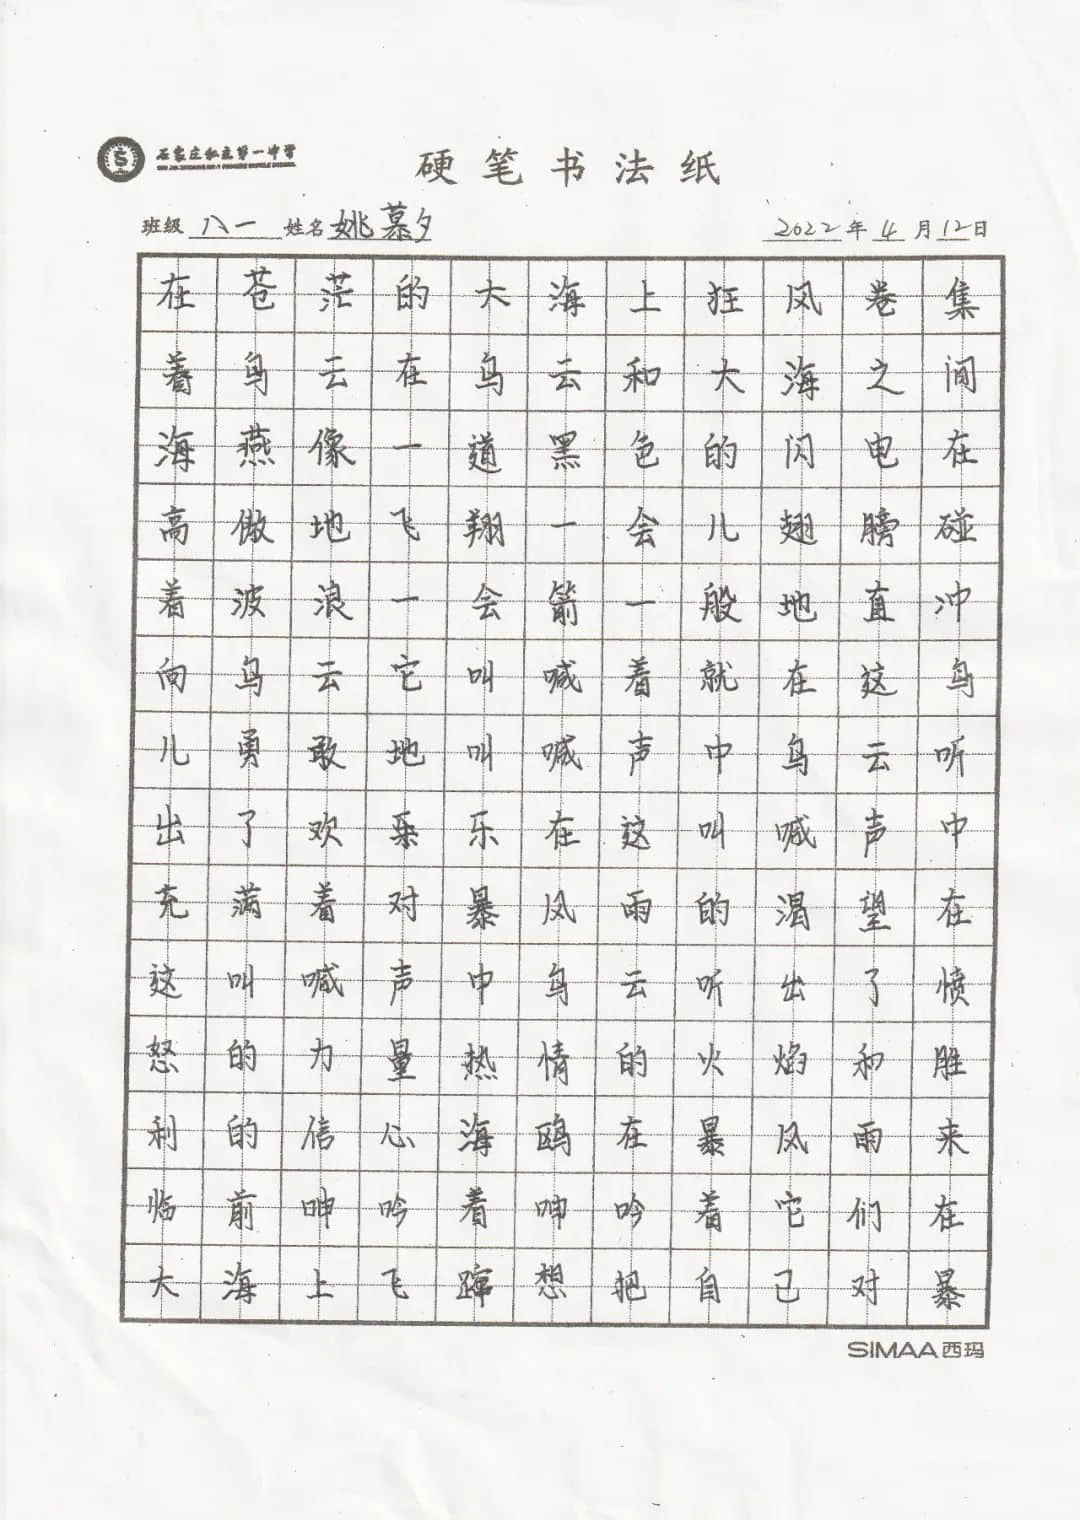 石家庄私立第一中学
硬笔书法纸
班级 八一 姓名 姚慕夕 2022年4月12日
在苍茫的大海上狂风卷集
着乌云在乌云和大海之间
海燕像一道黑色的闪电在
高傲地飞翔一会儿翅膀碰
着波浪一会箭一般地直冲
向乌云它叫喊着就在这鸟
儿勇敢地叫喊声中乌云听
出了欢乐乐在这叫喊声中
充满着对暴风雨的渴望在
这叫喊声中乌云听出了愤
怒的力量热情的火焰和胜
利的信心海鸥在暴风雨来
临前呻吟着呻吟着它们在
大海上飞蹿想把自己对暴
SIMAA西玛